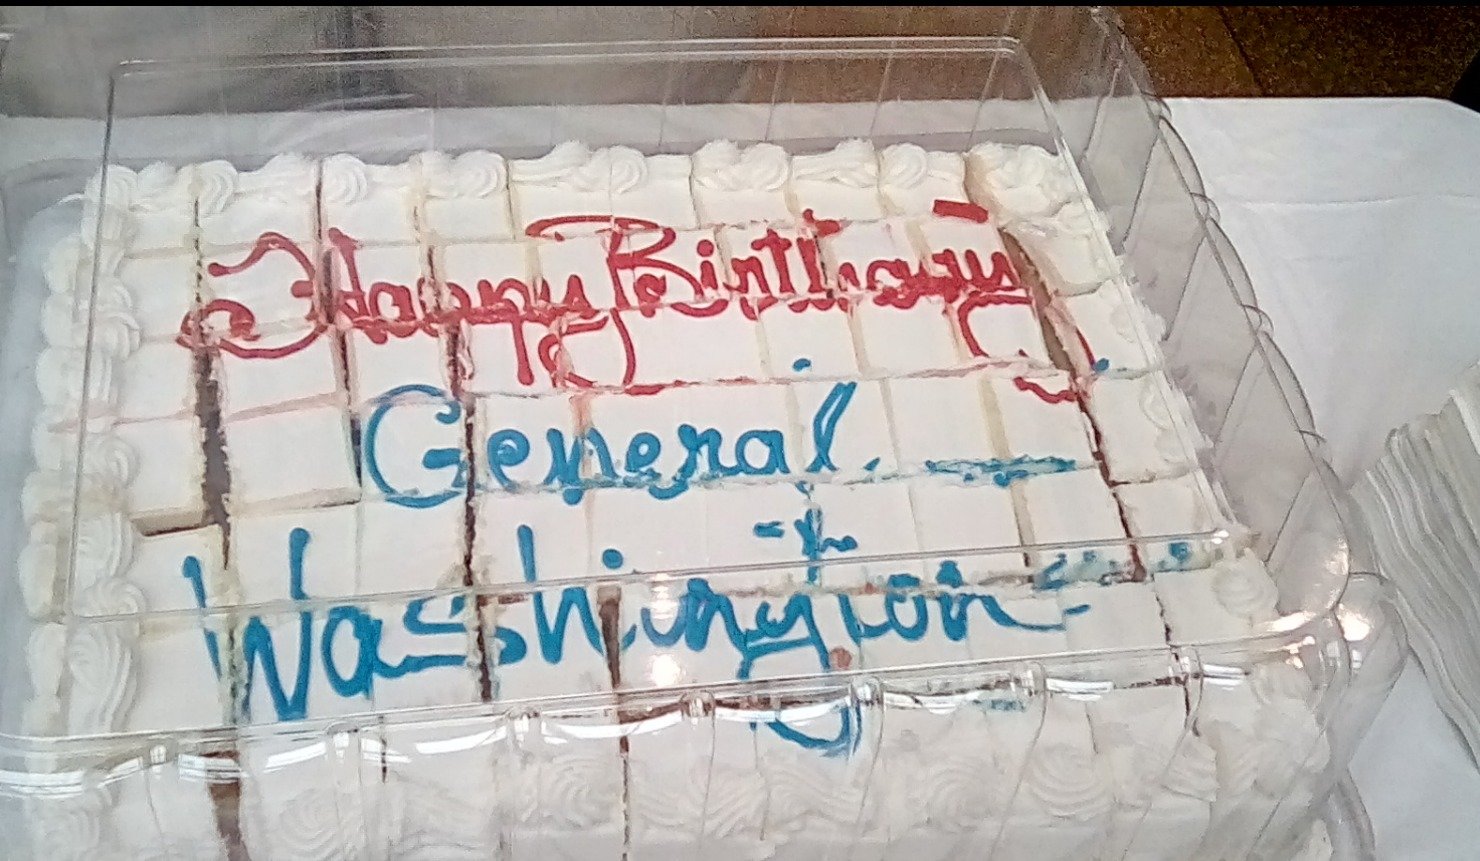 Happy Birthday
General
Washington